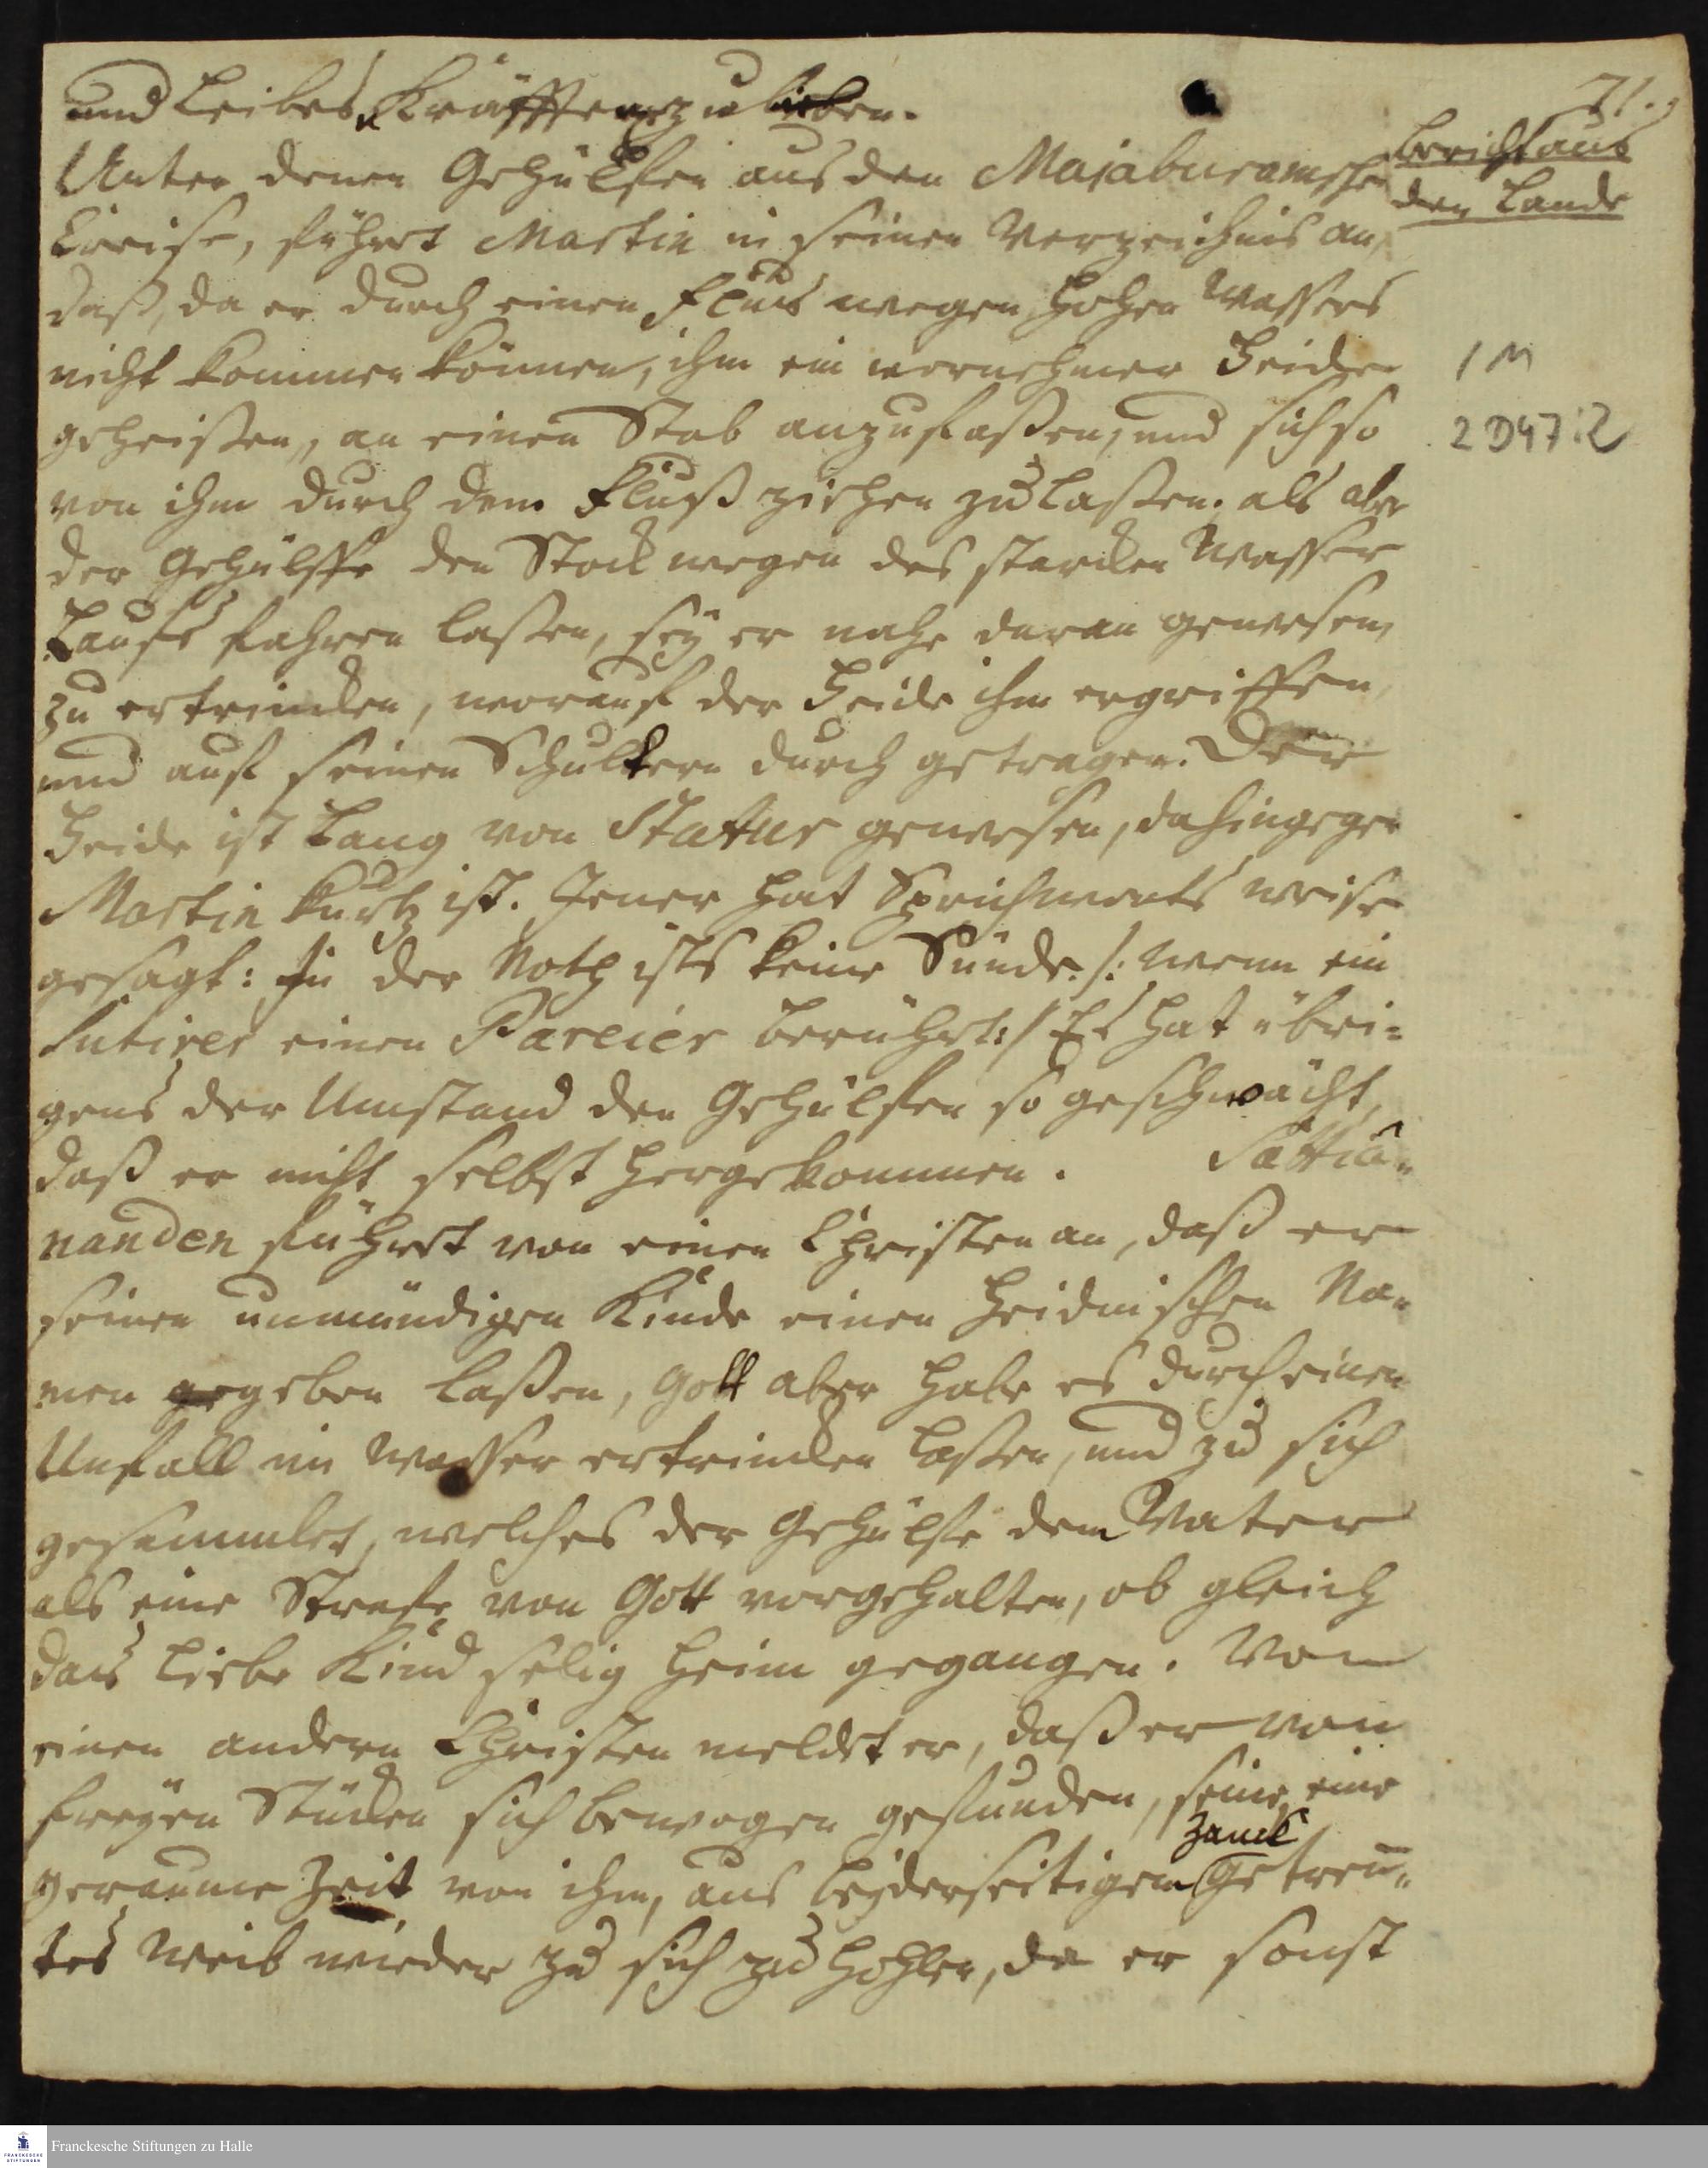 71.
und Leibes Kräfften zu lieben.
Bericht aus
den Lande
Unter denen Gehülffen aus den Majaburamschen
Creise, führet Martin in seinen Verzeichnis an,
daß, da er durch einen Fluß wegen hohen Wassers
nicht kommen können, ihm ein vornehmer Heide
1 M
geheißen, an einen Stab anzufaßen, und sich so
2 D47:2
von ihm durch dem Fluß ziehen zu laßen. als aber
der Gehülffe den Stock wegen des starcken Wasser
Laufs fahren laßen, seÿ er nahe daran gewesen,
zu ertrincken, worauf der Heide ihm ergriffen,
und auf seinen Schultern durch getragen. Der
Heide ist Lang von Statur gewesen, dahingegen
Martin kurtz ist. Jener hat Sprichworts weise
gesagt: In der Noth ists keine Sünde. /: wenn ein
Sutirer einen Pareier berührt :/ Es hat übri-
gens der Umstand den Gehülfen so geschwächt,
daß er nicht selbst hergekommen. Sattia-
nanden führet von einen Christen an, daß er
seinen unmündigen Kinde einen heidnischen Na-
men gegeben laßen, Gott aber habe es durch einen
Unfall im Wasser ertrincken laßen, und zu sich
gesammlet, welches der Gehülfe dem Vater
als eine Strafe von Gott vorgehalten, ob gleich
das liebe Kind selig heim gegangen. Von
einen andern Christen meldet er, daß er von
freÿen Stücken sich bewogen gefunden, seine eine
Zanck
geraume Zeit von ihm, aus beÿderseitigen getrenn-
tes Weib wieder zu sich zu hohlen, da er sonst
Franckesche Stiftungen zu Halle